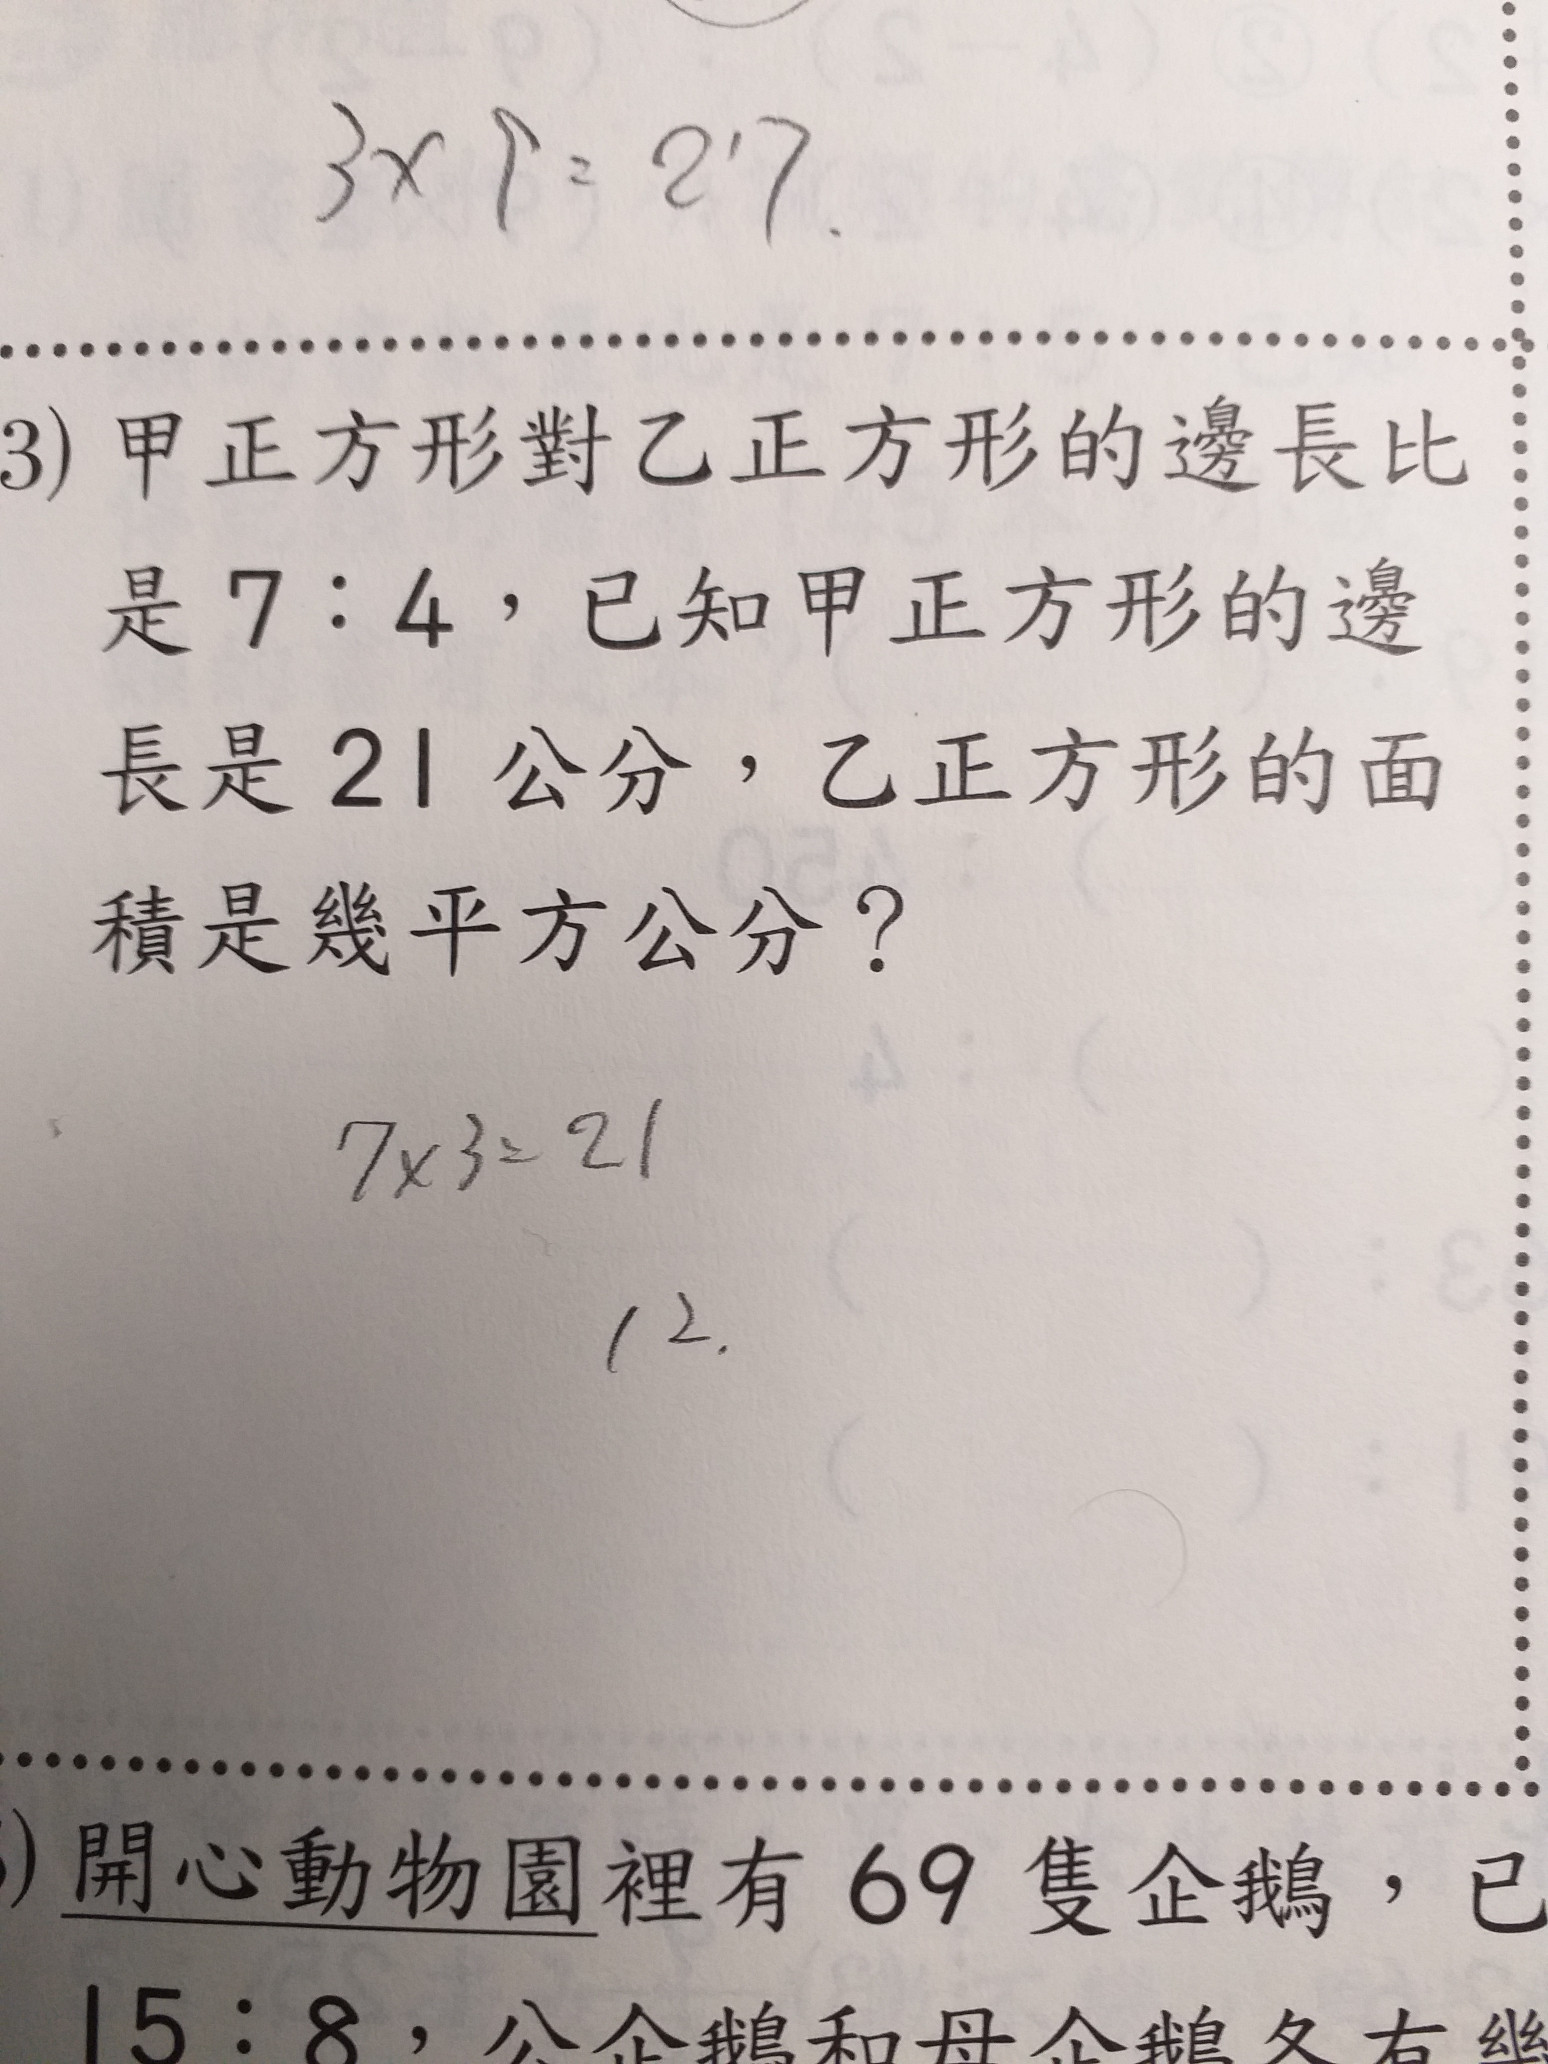 3×9=27.
3) 甲正方形對乙正方形的邊長比
是7：4，已知甲正方形的邊
長是21公分，乙正方形的面
積是幾平方公分？
7×3=21
12.
) 開心動物園裡有69隻企鵝，已
15：8，公企鵝和母企鵝各有幾